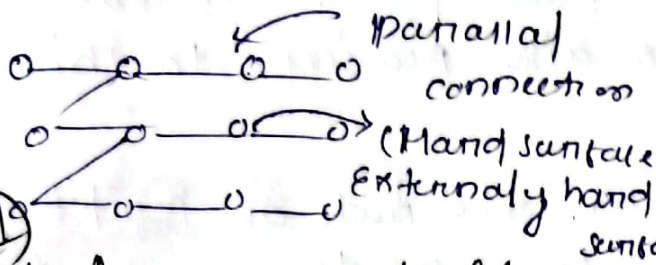 Parallal
connection
(Hand surface
Externaly hand
surfa